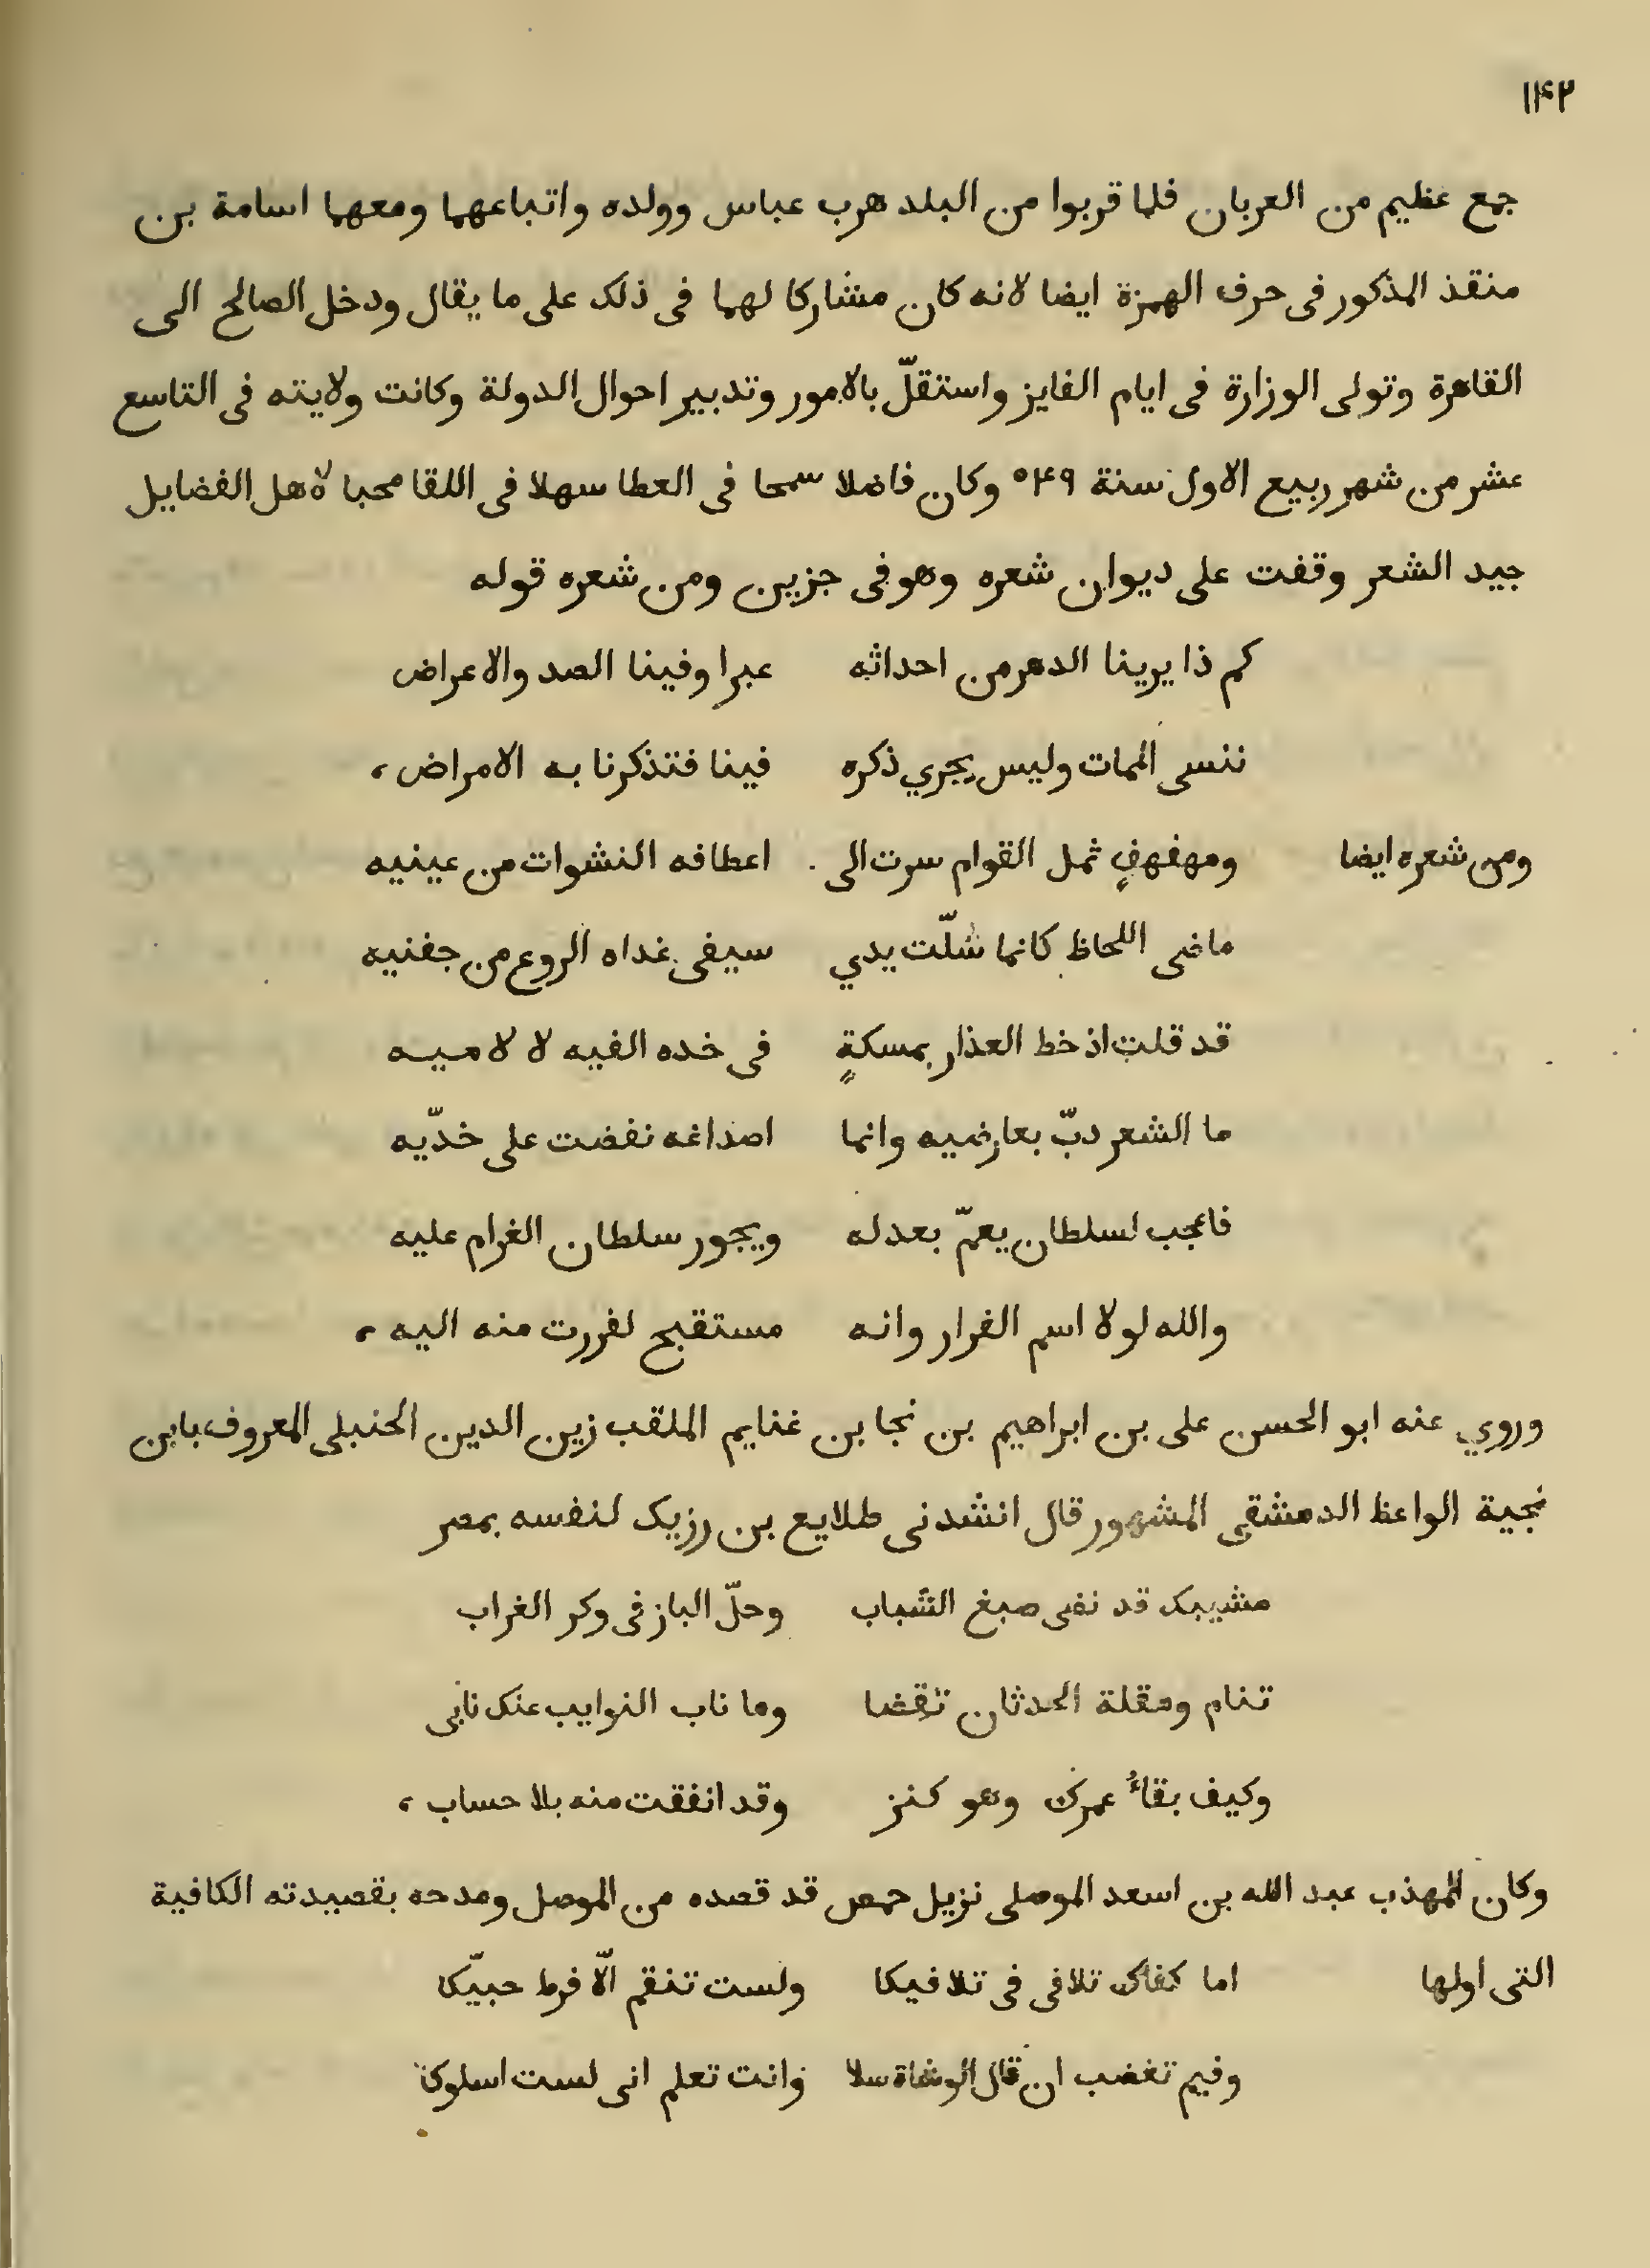 ١١۴٢
جمع عظيم من العربان فلما قربوا من البلد هرب عباس وولده واتباعهما ومعهما اسامة بن
منقذ المذكور فى حرف الهمزة ايضا لانه كان مشاركا لهما فى ذلك على ما يقال ودخل الصالح الى
القاهرة وتولى الوزارة فى ايام الفايز واستقلّ بالامور وتدبير احوال الدولة وكانت ولايته فى التاسع
عشر من شهر ربيع الاول سنة ٥۴٩ وكان فاضلا سمحا فى العطا سهلا فى اللقا محبا لاهل الفضايل
جيد الشعر وقفت على ديوان شعره وهو فى جزين ومن شعره قوله
كم ذا يرينا الدهر من احداثه عبرا وفينا الصد والاعراض
ننسى الممات وليس يجري ذكره فينا فتذكرنا به الامراض،
ومن شعره ايضا ومهفهفٍ ثمل القوام سرت الى اعطافه النشوات من عينيه
ماضى اللحاظ كانما شلّت يدي سيفى غداه الروع من جفنيه
قد قلت اذ خط العذار بمسكةٍ فى خده الفيه لا لاميه
ما الشعر دبّ بعارضيه وانما اصداغه نفضت على خدّيه
فاعجب لسلطان يعمّ بعدله ويجور سلطان الغرام عليه
والله لولا اسم الفرار وانه مستقبح لفررت منه اليه،
وروي عنه ابو الحسن على بن ابراهيم بن نجا بن غنايم الملقب زين الدين الحنبلى المعروف بابن
نجية الواعظ الدمشقى المشهور قال انشدنى طلايع بن رزيك لنفسه بمصر
مشيبك قد نفى صبغ الشباب وحلّ الباز فى وكر الغراب
تنام ومقلة الحدثان تقضا وما ناب النوايب عنك نابى
وكيف بقاءُ عمرك وهو كنز وقد انفقت منه بلا حساب،
وكان المهذب عبد الله بن اسعد الموصلى نزيل حمص قد قصده من الموصل ومدحه بقصيدته الكافية
التى اولها اما كفاك تلافى فى تلافيكا ولست تنقم الّا فرط حبيّكا
وفيم تغضب ان قال الوشاة سلا وانت تعلم انى لست اسلوكا